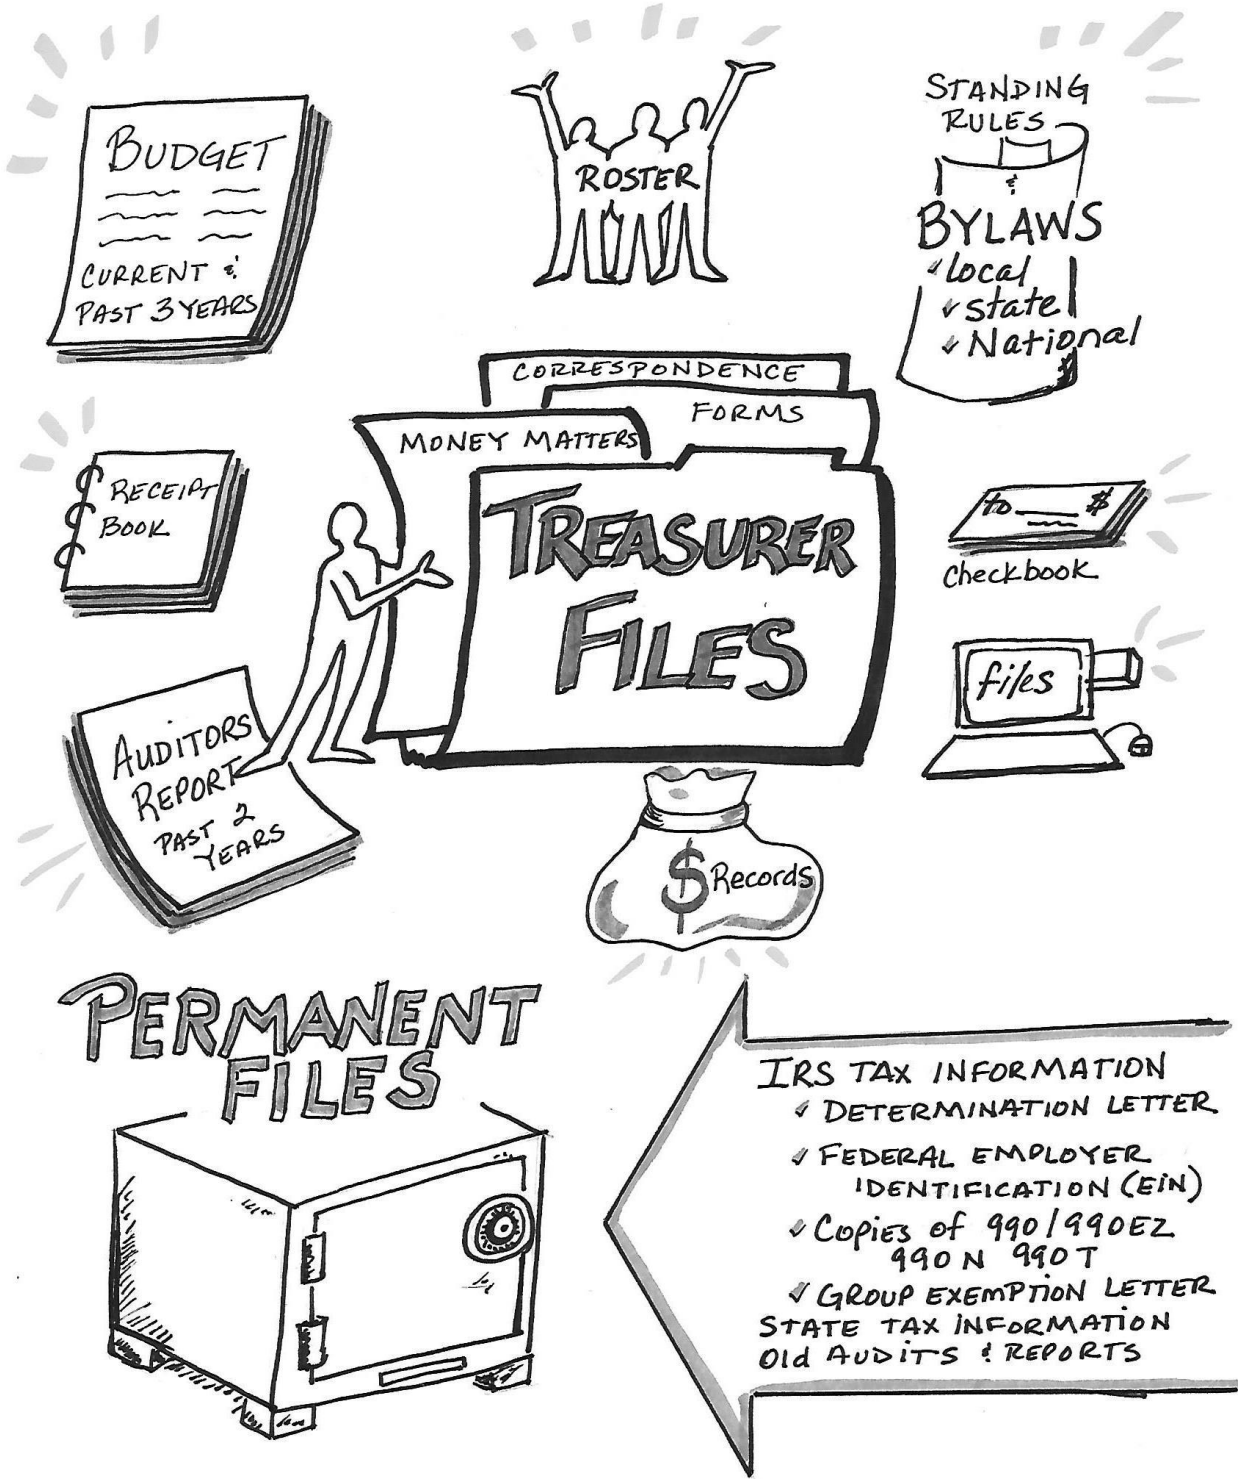 BUDGET
CURRENT &
PAST 3 YEARS
ROSTER
STANDING
RULES
&
BYLAWS
✓ local
✓ state
✓ National
CORRESPONDENCE
FORMS
MONEY MATTERS
TREASURER
FILES
RECEIPT
BOOK
to $
checkbook
files
AUDITORS
REPORT
PAST 2
YEARS
$ Records
PERMANENT
FILES
IRS TAX INFORMATION
✓ DETERMINATION LETTER
✓ FEDERAL EMPLOYER
IDENTIFICATION (EIN)
✓ Copies of 990/990EZ
990N 990T
✓ GROUP EXEMPTION LETTER
STATE TAX INFORMATION
Old AUDITS & REPORTS